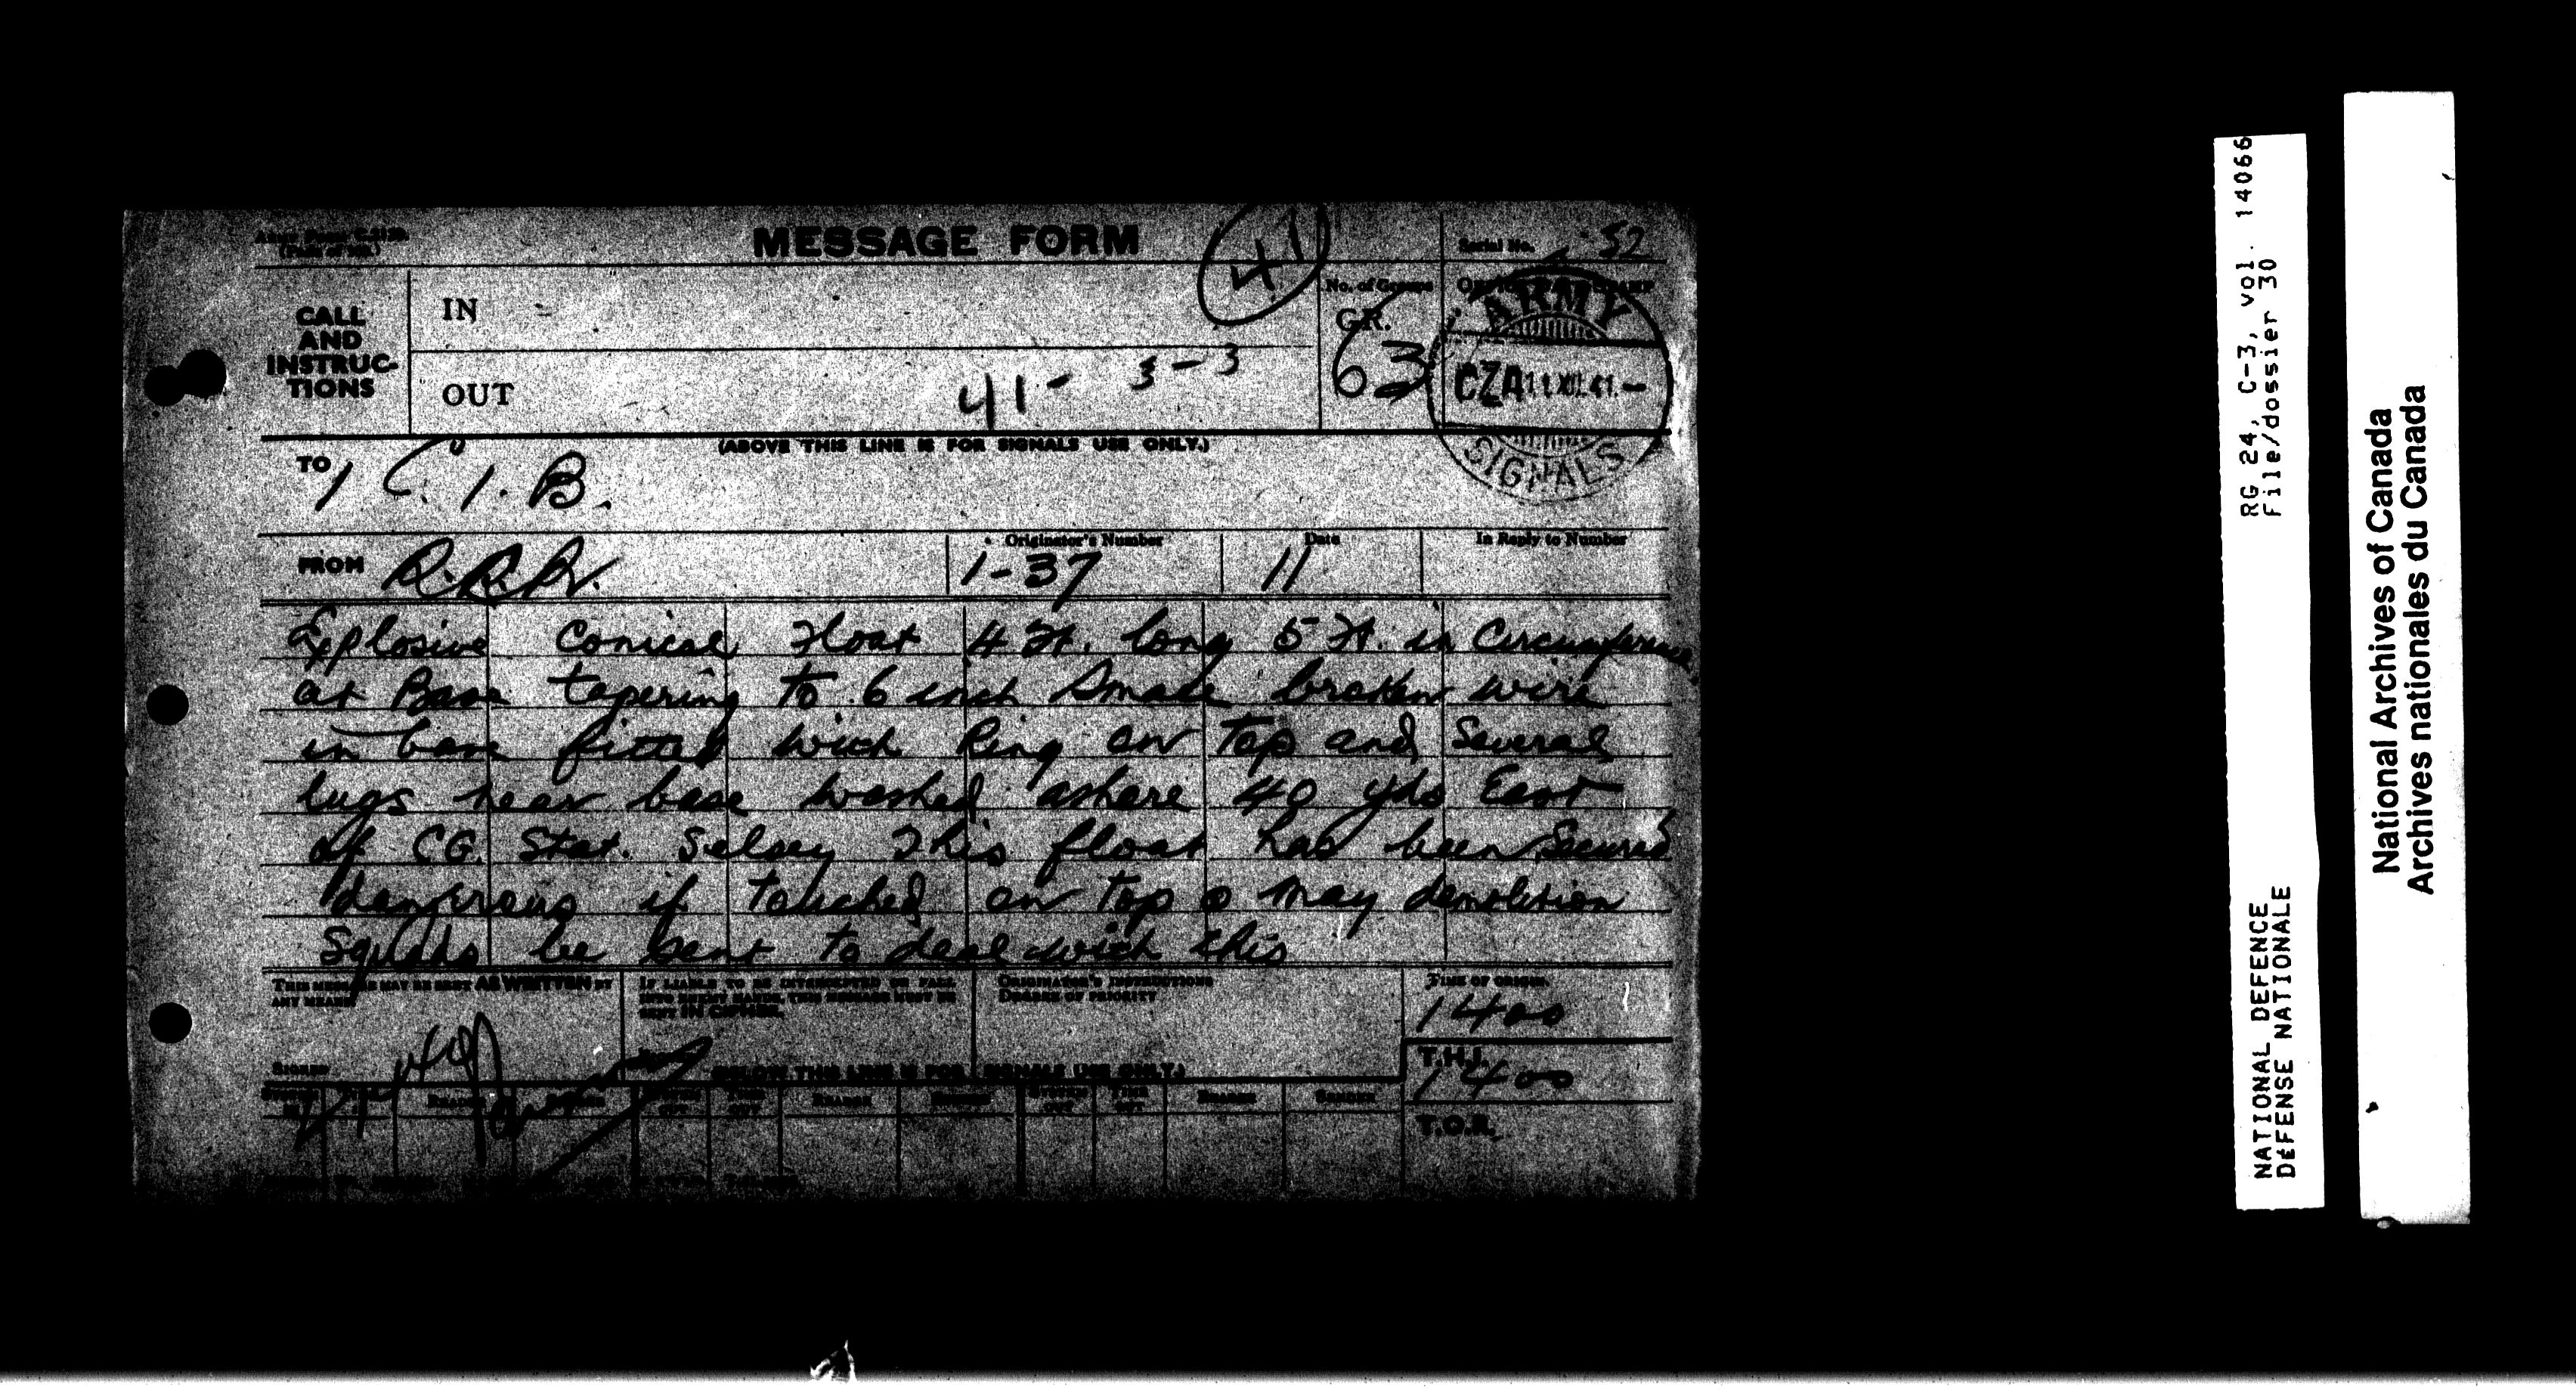 MESSAGE FORM
41
Serial No. 52
CALL AND INSTRUCTIONS
IN
OUT
41- 3-3
No. of Groups
GR.
63
ARMY
CZA 11 XII.41.-
SIGNALS
(ABOVE THIS LINE IS FOR SIGNALS USE ONLY.)
TO 1 C.I.B.
FROM
Originator's Number
1-37
Date
11
In Reply to Number
Explosive Conical Float 4 Ft. long 5 Ft. in Circumference
at Base tapering to 6 inch Small broken wire
in base fitted with Ring on Top and Several
lugs near base washed ashore 40 yds East
of CG. Stat. Selsey This float has been Secured
dangerous if touched on top o may demolition
Squads be sent to deal with this
THIS MESSAGE MAY BE SENT AS WRITTEN BY ANY MEANS
IF LIABLE TO BE INTERCEPTED OR FALL INTO ENEMY HANDS, THIS MESSAGE MUST BE SENT IN CIPHER.
ORIGINATOR'S INSTRUCTIONS
DEGREE OF PRIORITY
TIME OF ORIGIN
1400
SIGNED
(BELOW THIS LINE IS FOR SIGNALS USE ONLY.)
T.H.I.
1400
T.O.R.
RG 24, C-3, vol. 14066
File/dossier 30
NATIONAL DEFENCE
DÉFENSE NATIONALE
National Archives of Canada
Archives nationales du Canada